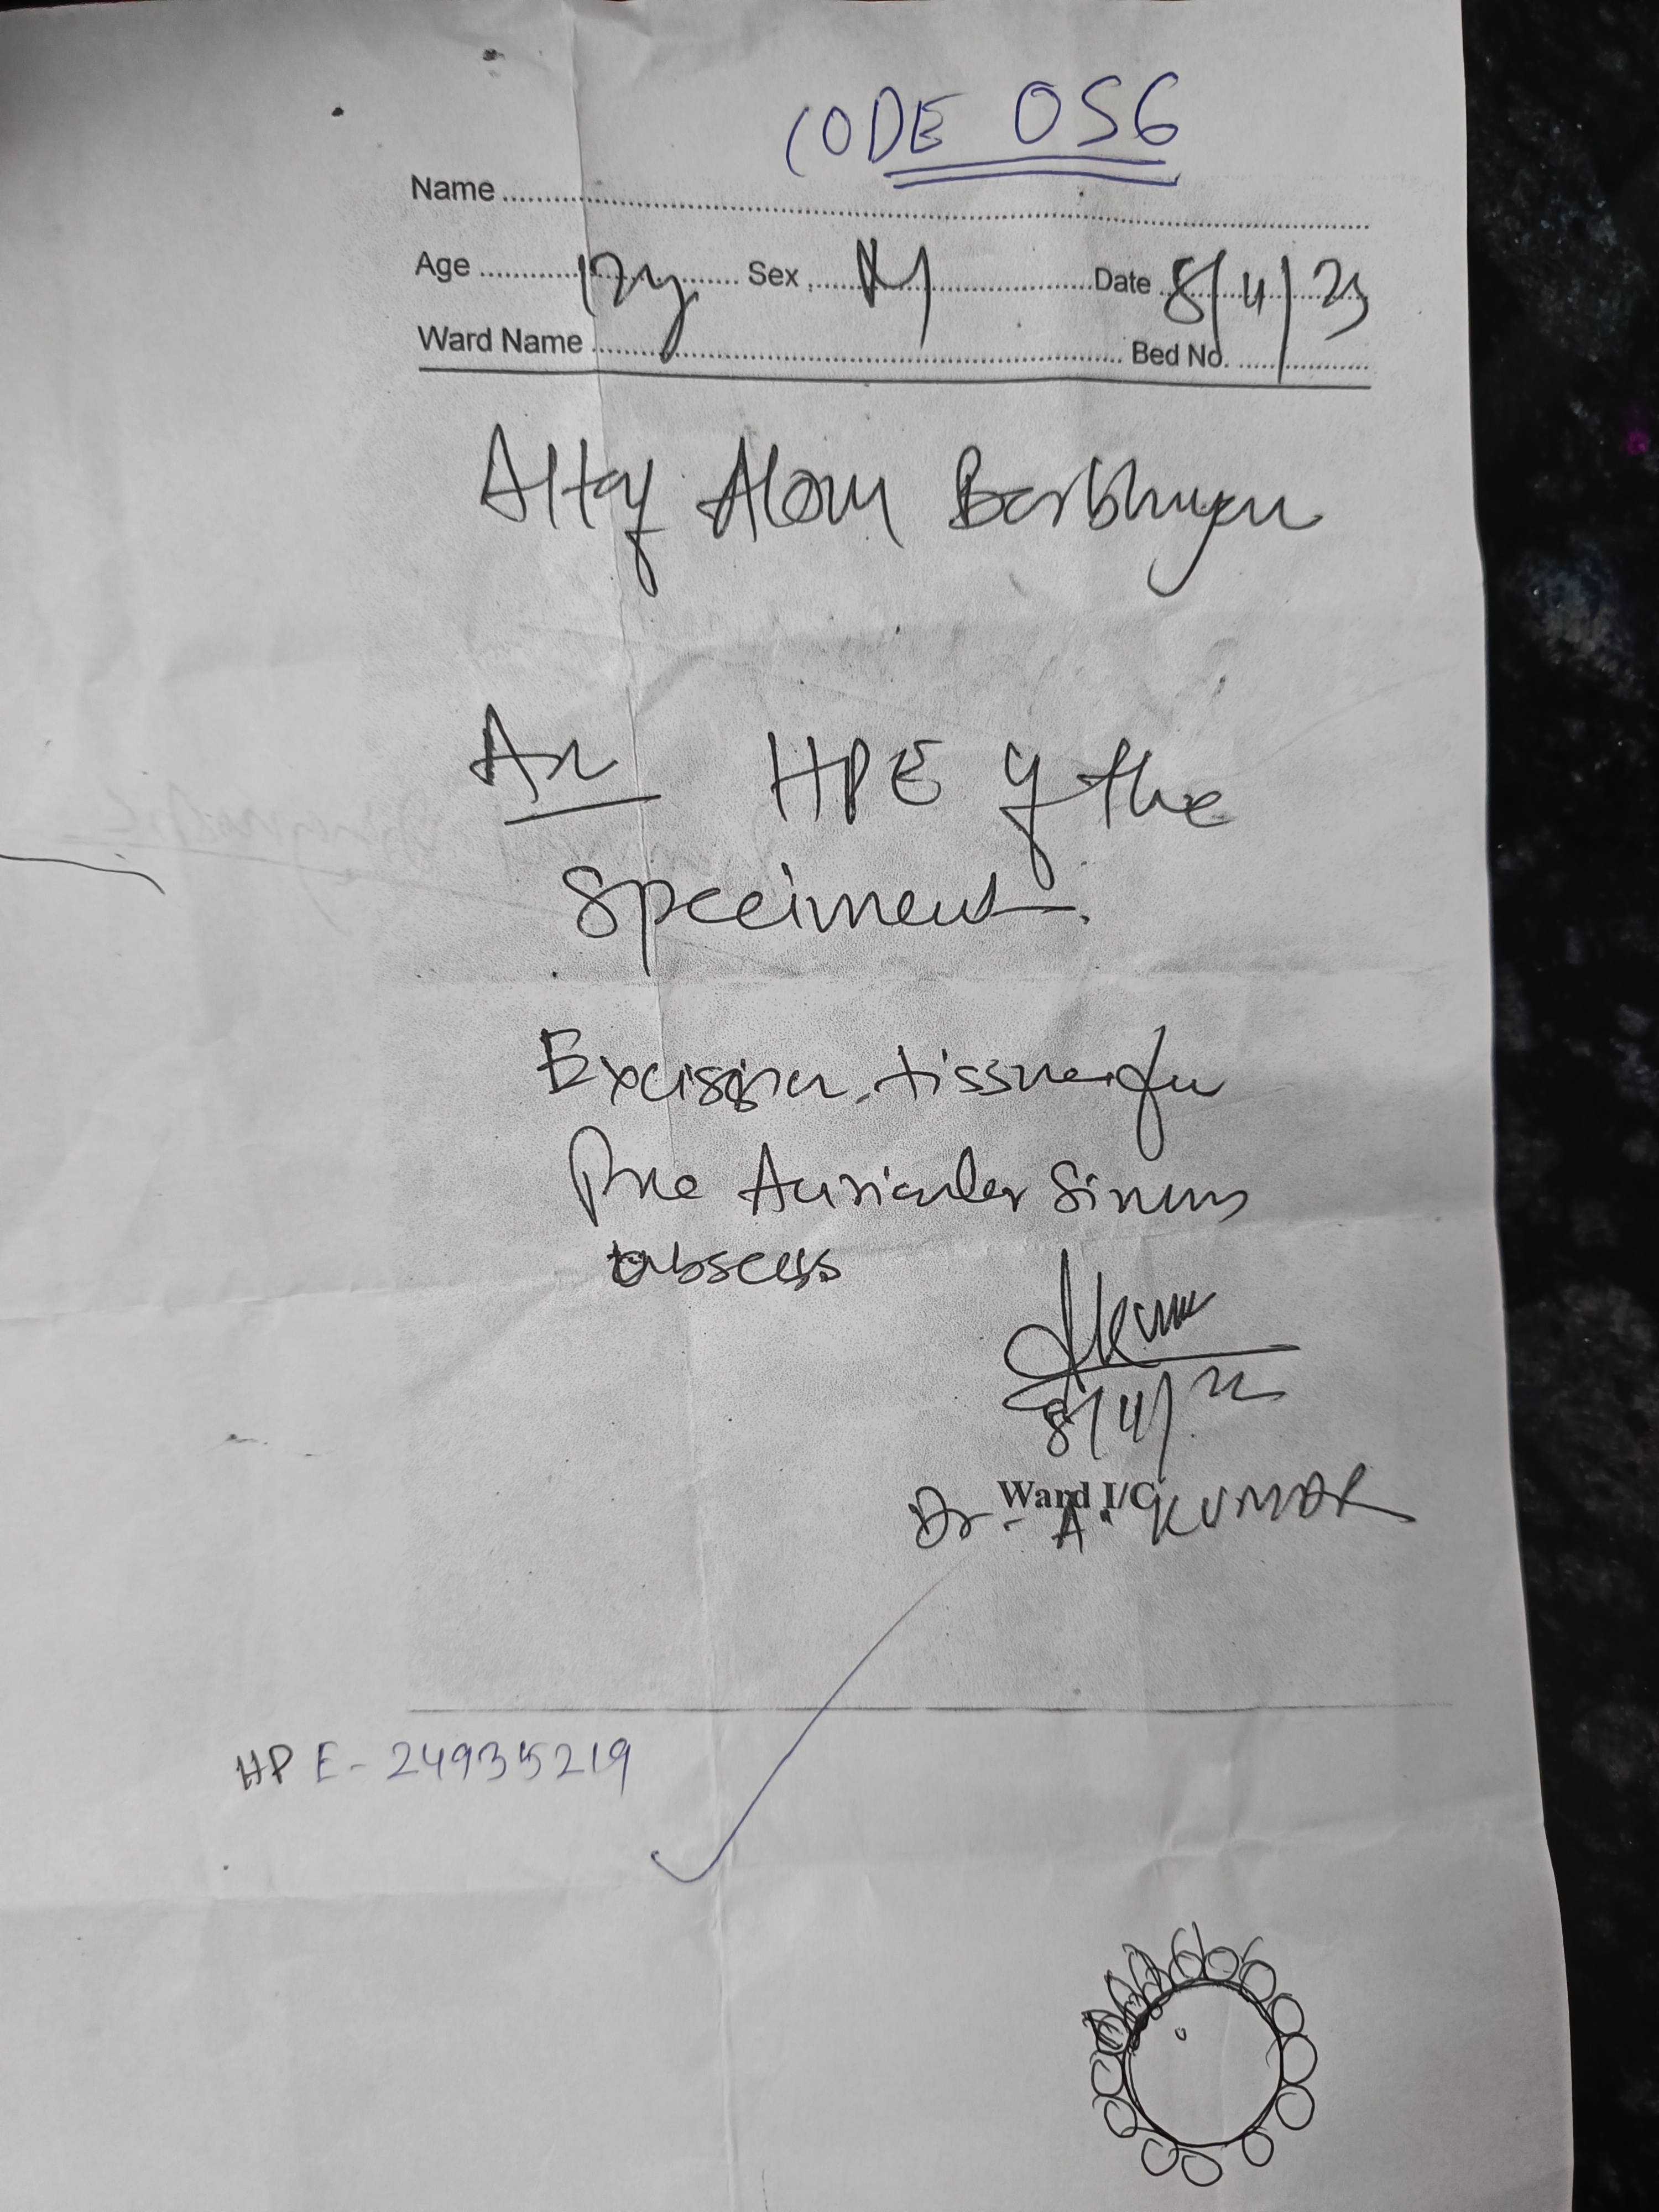 CODE OS6
Name
Age 12y Sex M Date 8/4/23
Ward Name Bed No.
Altaf Alom Barbhuyan
HPE of the
Specimen
Excision tissue for
Pre Auricular Sinus
abscess
8/4/22
Ward I/C
Dr. A. KUMAR
HPE-24935219